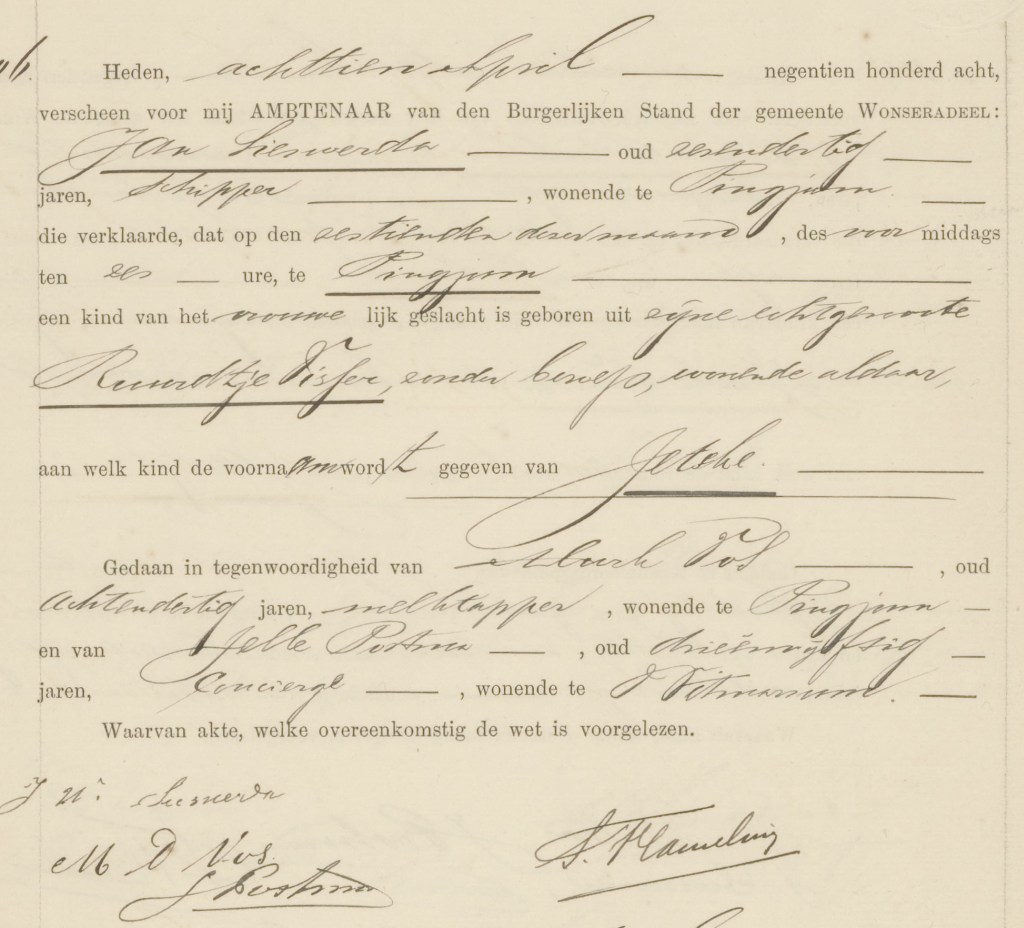 Heden, achttien April negentien honderd acht,
verscheen voor mij AMBTENAAR van den Burgerlijken Stand der gemeente WONSERADEEL:
Jan Sieswerda oud zesendertig
jaren, Schipper, wonende te Pingjum.
die verklaarde, dat op den zestienden dezer maand, des voor middags
ten zes ure, te Pingjum
een kind van het vrouwe lijk geslacht is geboren uit zijne echtgenoote
Ruurdtje Visser, zonder beroep, wonende aldaar,
aan welk kind de voornaam wordt gegeven van Jetske.
Gedaan in tegenwoordigheid van Murk Vos, oud
achtendertig jaren, melktapper, wonende te Pingjum
en van Jelle Postma, oud drieënvijftig
jaren, Concierge, wonende te Witmarsum.
Waarvan akte, welke overeenkomstig de wet is voorgelezen.
J Sieswerda
M D Vos.
J Postma